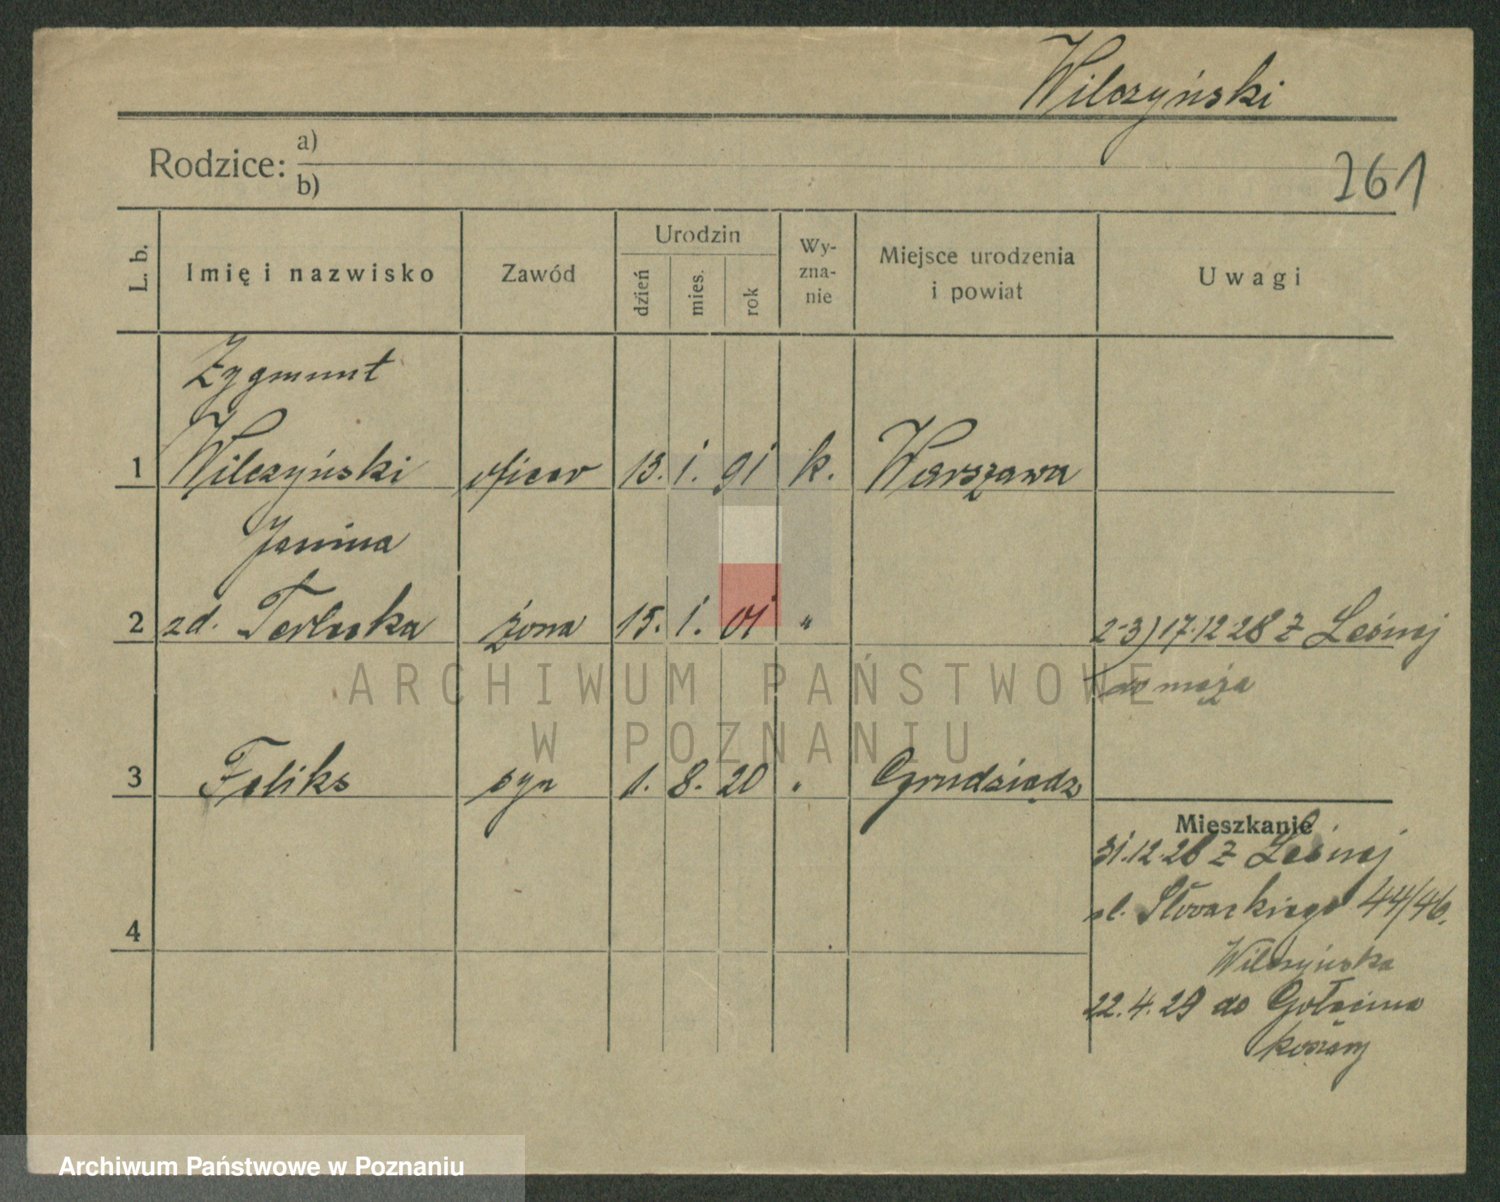 Wilczyński
Rodzice: a)
b)
261
L. b.
Imię i nazwisko
Zawód
Urodzin
dzień
mies.
rok
Wy-
zna-
nie
Miejsce urodzenia
i powiat
Uwagi
Zygmunt
1 Wilczyński oficer 13. I. 91 k. Warszawa
Janina
2 zd. Terlecka żona 15. I. 01 " 2-3) 17.12.28 z Leśnej
do męża
ARCHIWUM PAŃSTWOWE
W POZNANIU
3 Feliks syn 1. 8. 20 " Grudziądz
Mieszkanie
31.12.28 z Leśnej
ul. Słowackiego 44/46.
4
Wilczyńska
22.4.29 do Gołęcina
koszary
Archiwum Państwowe w Poznaniu